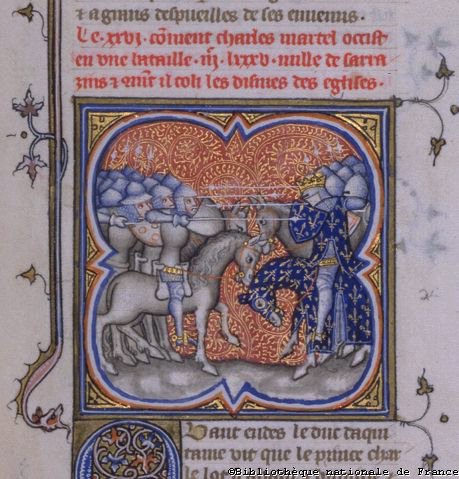 et agaignis despueilles de ses ennemis.
Le .xxvj. coment charles martel occist
en une bataille .iij. lxxxv. mille de sarra
zins et coment il toli les dismes des eglises.
Quant eudes le duc daqui
taine vit que le prince char
©Bibliothèque nationale de France